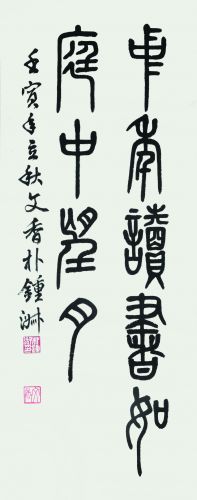 中年讀書如
庭中望月
壬寅年立秋文香朴鍾